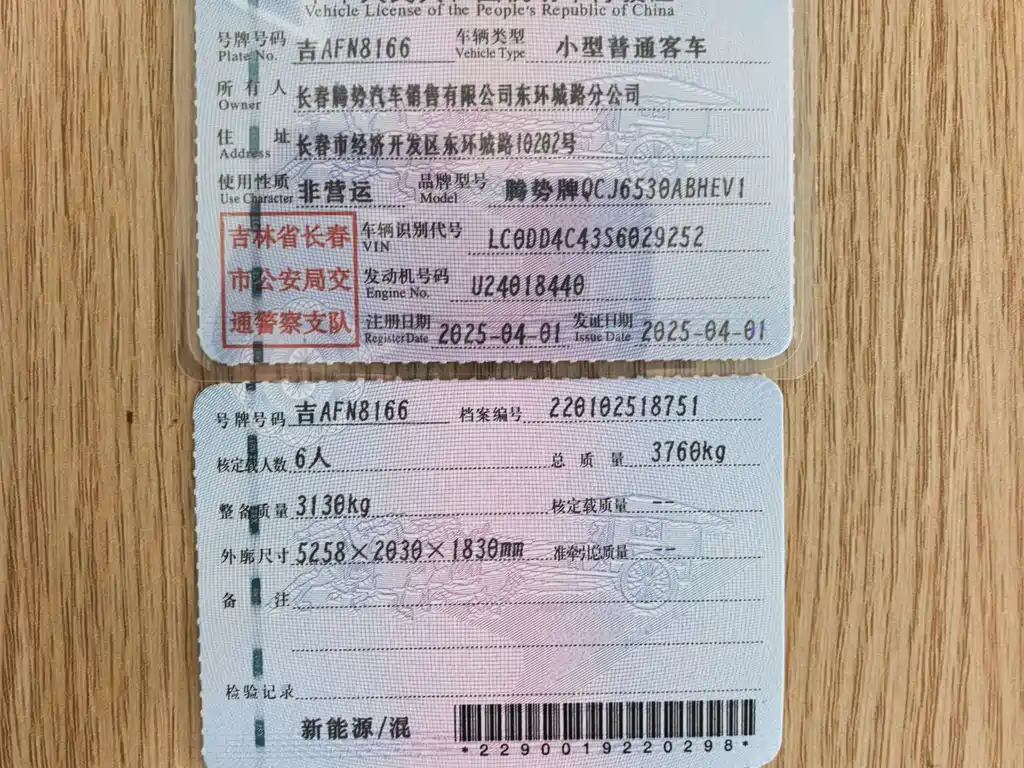 Vehicle License of the People's Republic of China
号牌号码 吉AFN8166 车辆类型 小型普通客车
Plate No. Vehicle Type
所有人 长春腾势汽车销售有限公司东环城路分公司
Owner
住址 长春市经济开发区东环城路10202号
Address
使用性质 非营运 品牌型号 腾势牌QCJ6530ABHEV1
Use Character Model
吉林省长春
市公安局交
通警察支队
车辆识别代号 LC0DD4C43S6029252
VIN
发动机号码 U24018440
Engine No.
注册日期 2025-04-01 发证日期 2025-04-01
Register Date Issue Date
号牌号码 吉AFN8166 档案编号 220102518751
核定载人数 6人 总质量 3760kg
整备质量 3130kg 核定载质量 --
外廓尺寸 5258×2030×1830mm 准牵引总质量 --
备注
检验记录
新能源/混
*2290019220298*